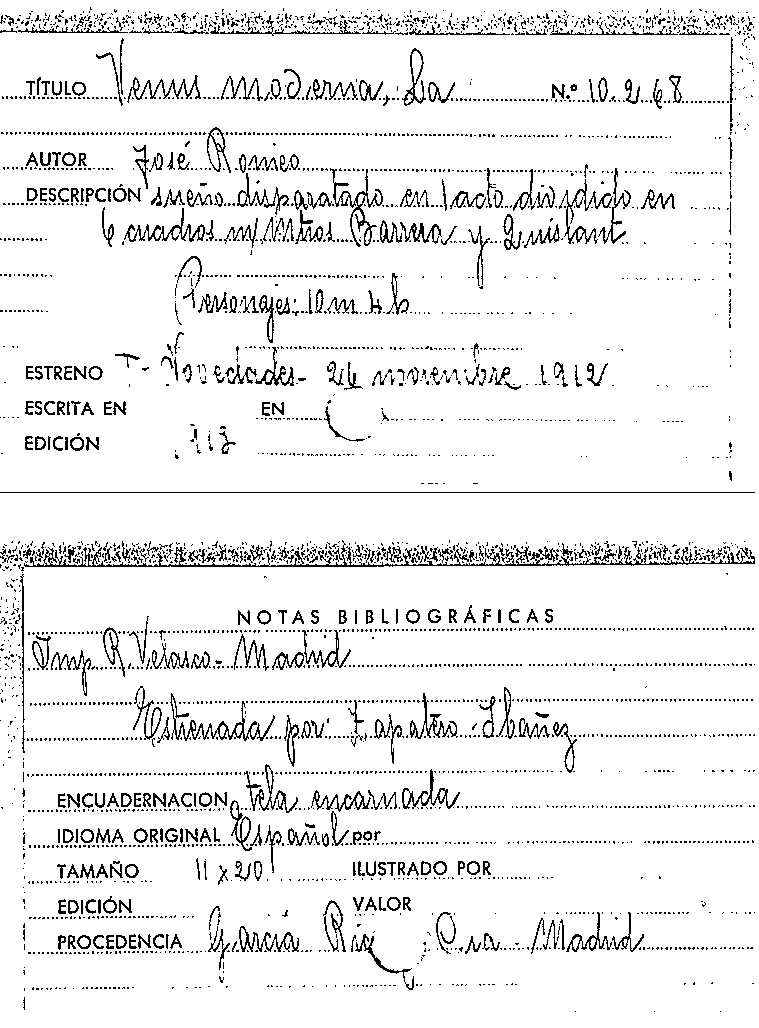 TÍTULO Venus moderna, La N.º 10.268
AUTOR José Romeo
DESCRIPCIÓN sueño disparatado en 1 acto dividido en
6 cuadros m/ Mtros Barrera y Quislant
Personajes: 10 m 4 h
ESTRENO T- Novedades- 26 noviembre 1912
ESCRITA EN EN
EDICIÓN 913
NOTAS BIBLIOGRÁFICAS
Imp R. Velasco- Madrid
Estrenada por: Zapatero-Ibañez
ENCUADERNACION tela encarnada
IDIOMA ORIGINAL Español por
TAMAÑO 11 x 20 ILUSTRADO POR
EDICIÓN VALOR
PROCEDENCIA García Madrid